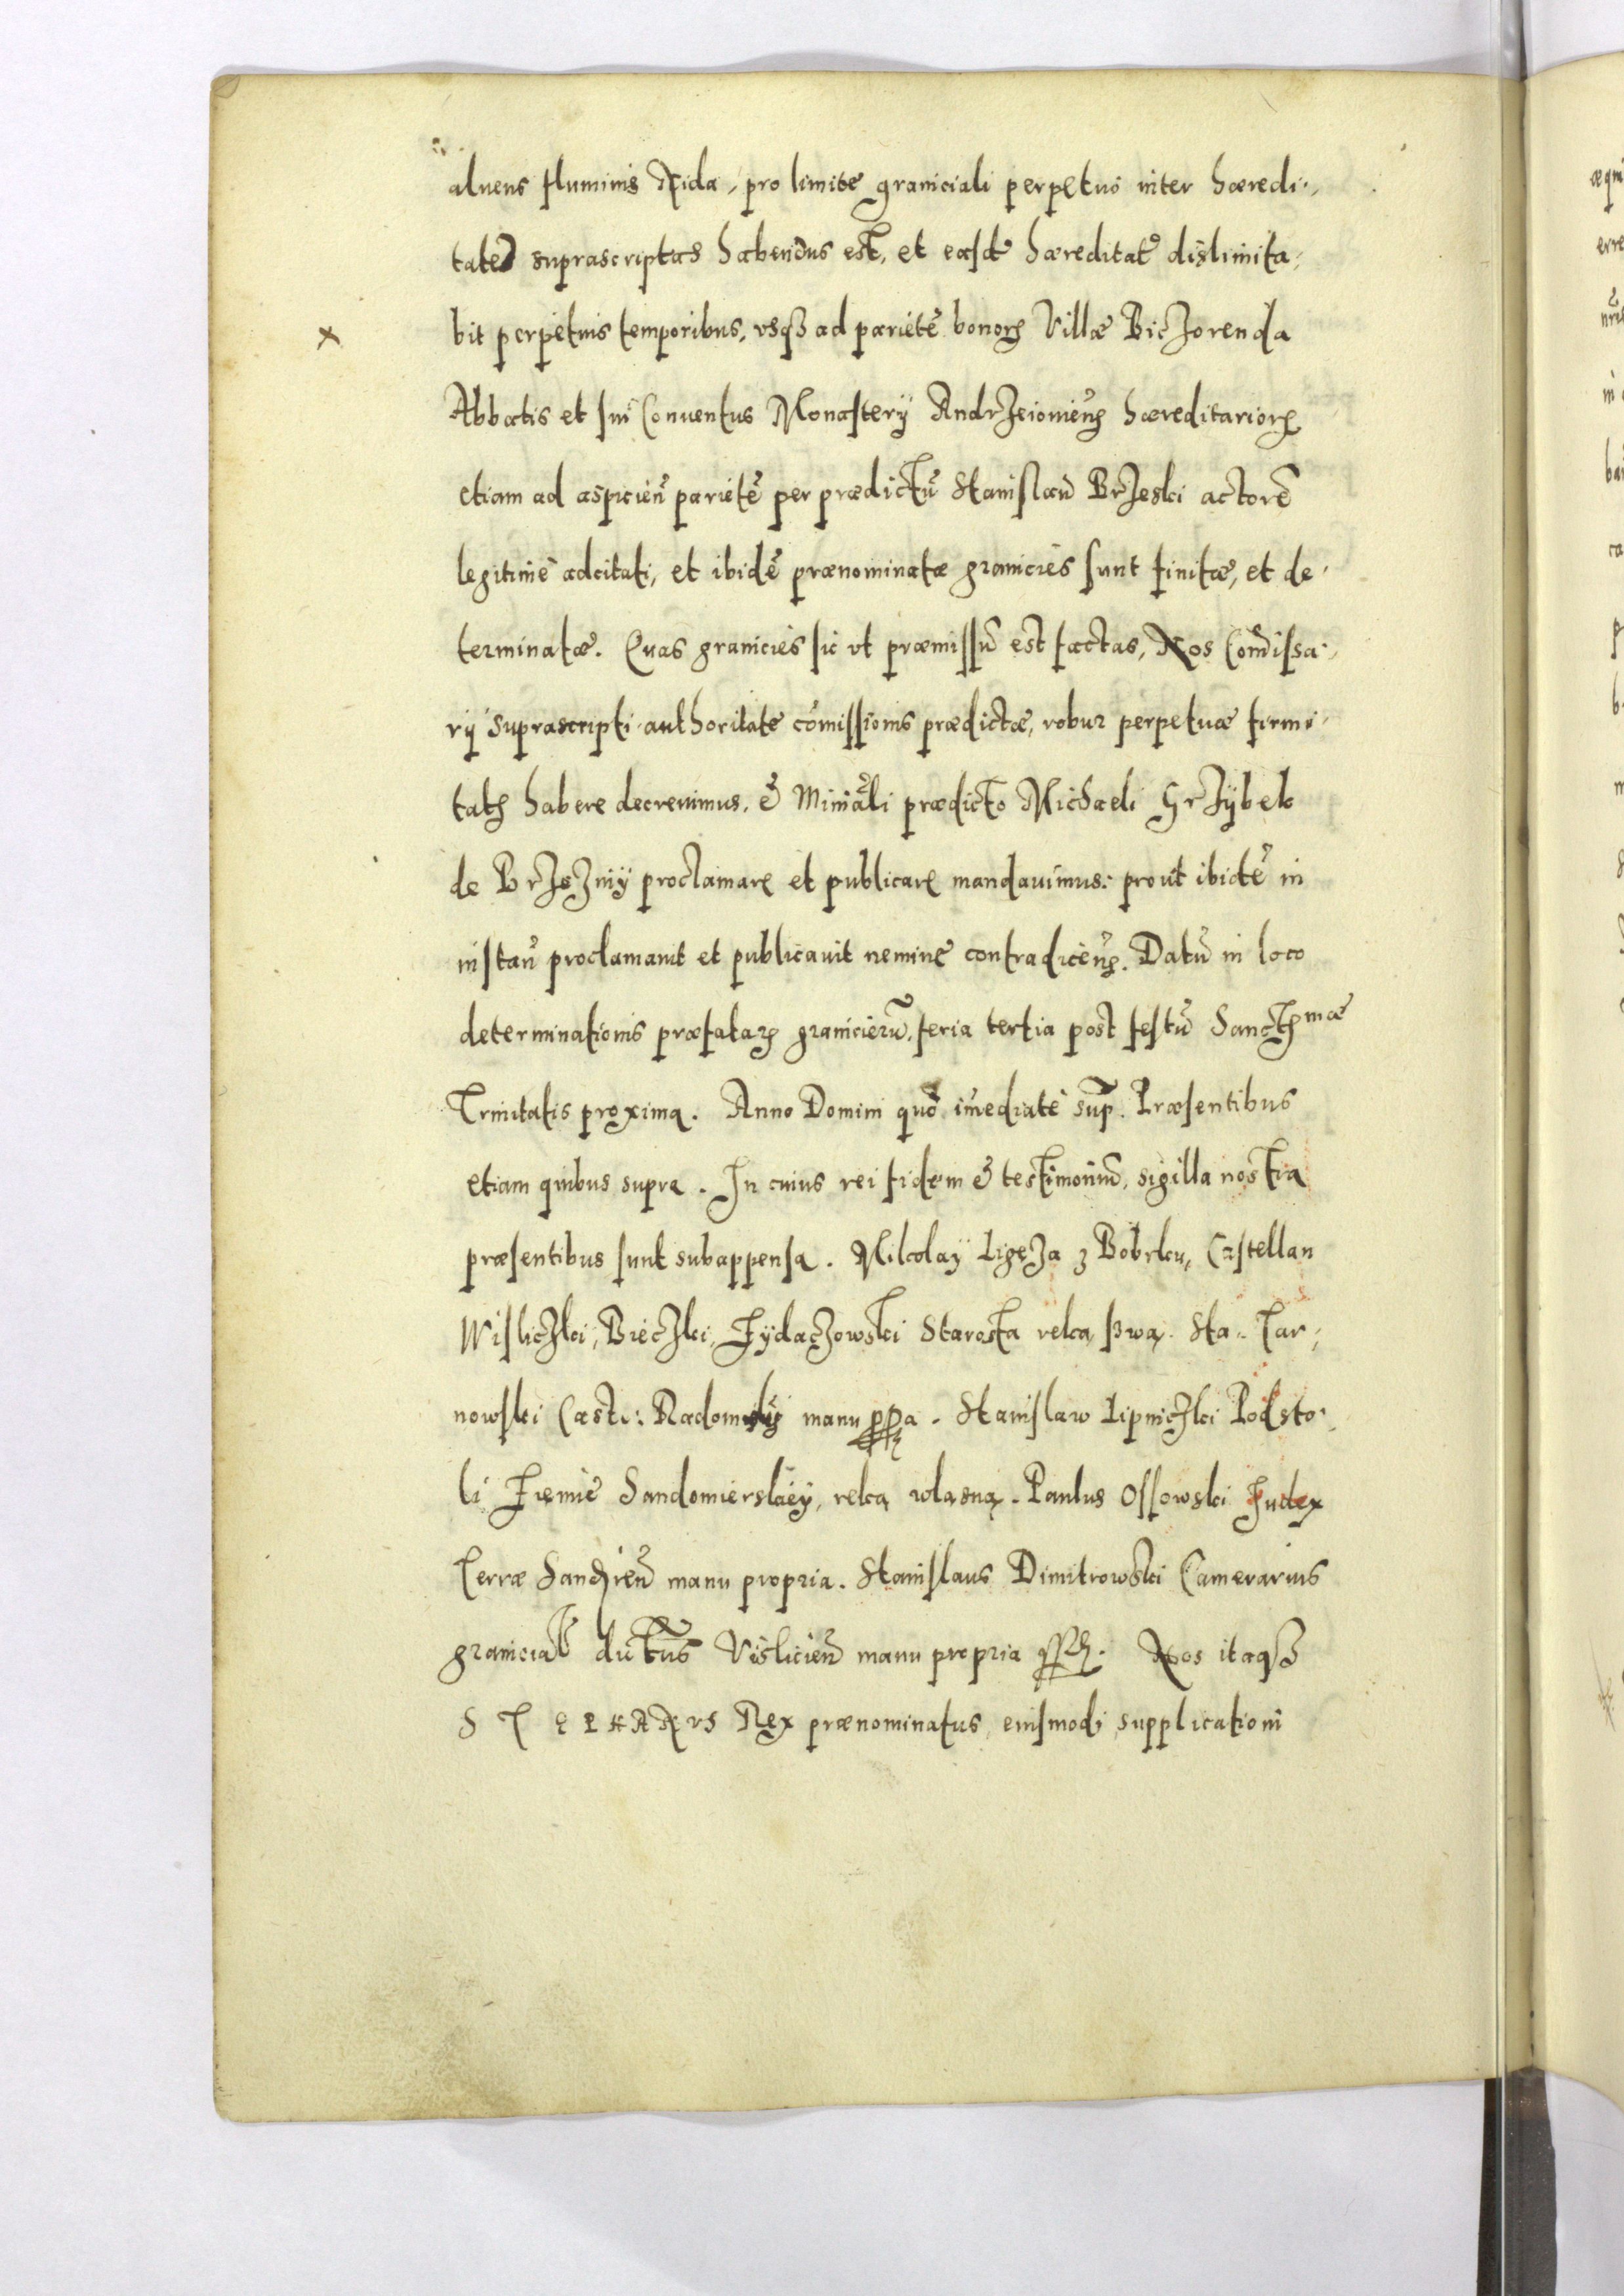 alueus fluminis Nida, pro limite graniciali perpetuò inter hæredi-
tates suprascriptas habendus est, et easdē hæreditatẽ dislimita-
bit perpetuis temporibus, vsqꝫ ad parietē bonoꝝ Villæ Biczorenda
Abbatis et sui Conuentus Monastery Andrzeiouieñ hæreditarioꝝ
etiam ad aspicień parietē per prædictū Stanislaū Brzeski actorē
legitimè adcitati, et ibidē prænominatæ granicies sunt finitæ, et de-
terminatæ. Quas granicies sic vt præmissū est factas, Nos Com̃issa-
rÿ suprascripti authoritate com̃issionis prædictæ, robur perpetuæ firmi-
tatꝭ habere decreuimus, & Miniāli prædicto Michaeli Grzÿbek
de Brzezniÿ proclamare et publicare mandauimus: prout ibidē in
instañ proclamauit et publicauit neminē contradiceñ. Datū in loco
determinationis præfataꝝ granicierū, feria tertia post festū Sanctꝭmæ
Trinitatis proxima. Anno Domini quo im̃ediatè sup̃. Præsentibus
etiam quibus supra. In cuius rei fidem & testimoniū, sigilla nostra
præsentibus sunt subappensa. Mikolaÿ Ligęza z Bobrku, Castellan
Wisliczki, Bieczki, Zÿdaczowski Starosta ręką swą. Sta. Tar-
nowski Castl: Radom manu ppa. Stanislaw Lipniczki Podsto-
li Ziemie Sandomierskiéÿ, ręką własną. Paulus Ossowski Iudex
Terræ Sandień manu propria. Stanislaus Dimitrowski Camerarius
granicial̃ Visliceñ manu propria ssꝭ. Nos itaqꝫ
STEPHANVS Rex prænominatus, eiusmodi supplicationi